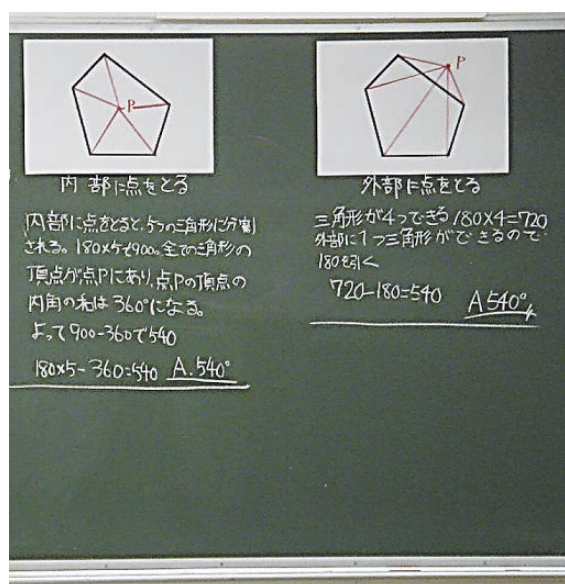 P
内部に点をとる
内部に点をとると、5つの三角形に分割
される。180×5で900。全ての三角形の
頂点が点Pにあり、点Pの頂点の
内角の和は360°になる。
よって900-360で540
180×5-360=540 A.540°
P
外部に点をとる
三角形が4つできる180×4=720
外部に1つ三角形ができるので
180を引く
720-180=540 A540°